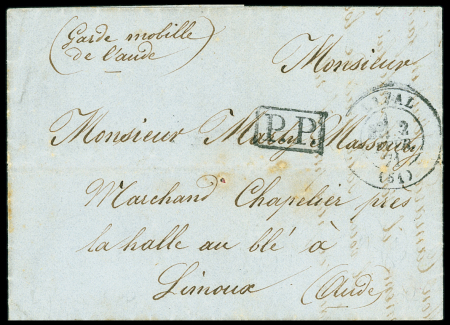 (Garde mobille
de l'aude)
Monsieur
LAVAL
2
(51)
P.P.
Monsieur Massou
Marchand Chapélier près
la halle au blé à
Limoux (Aude)